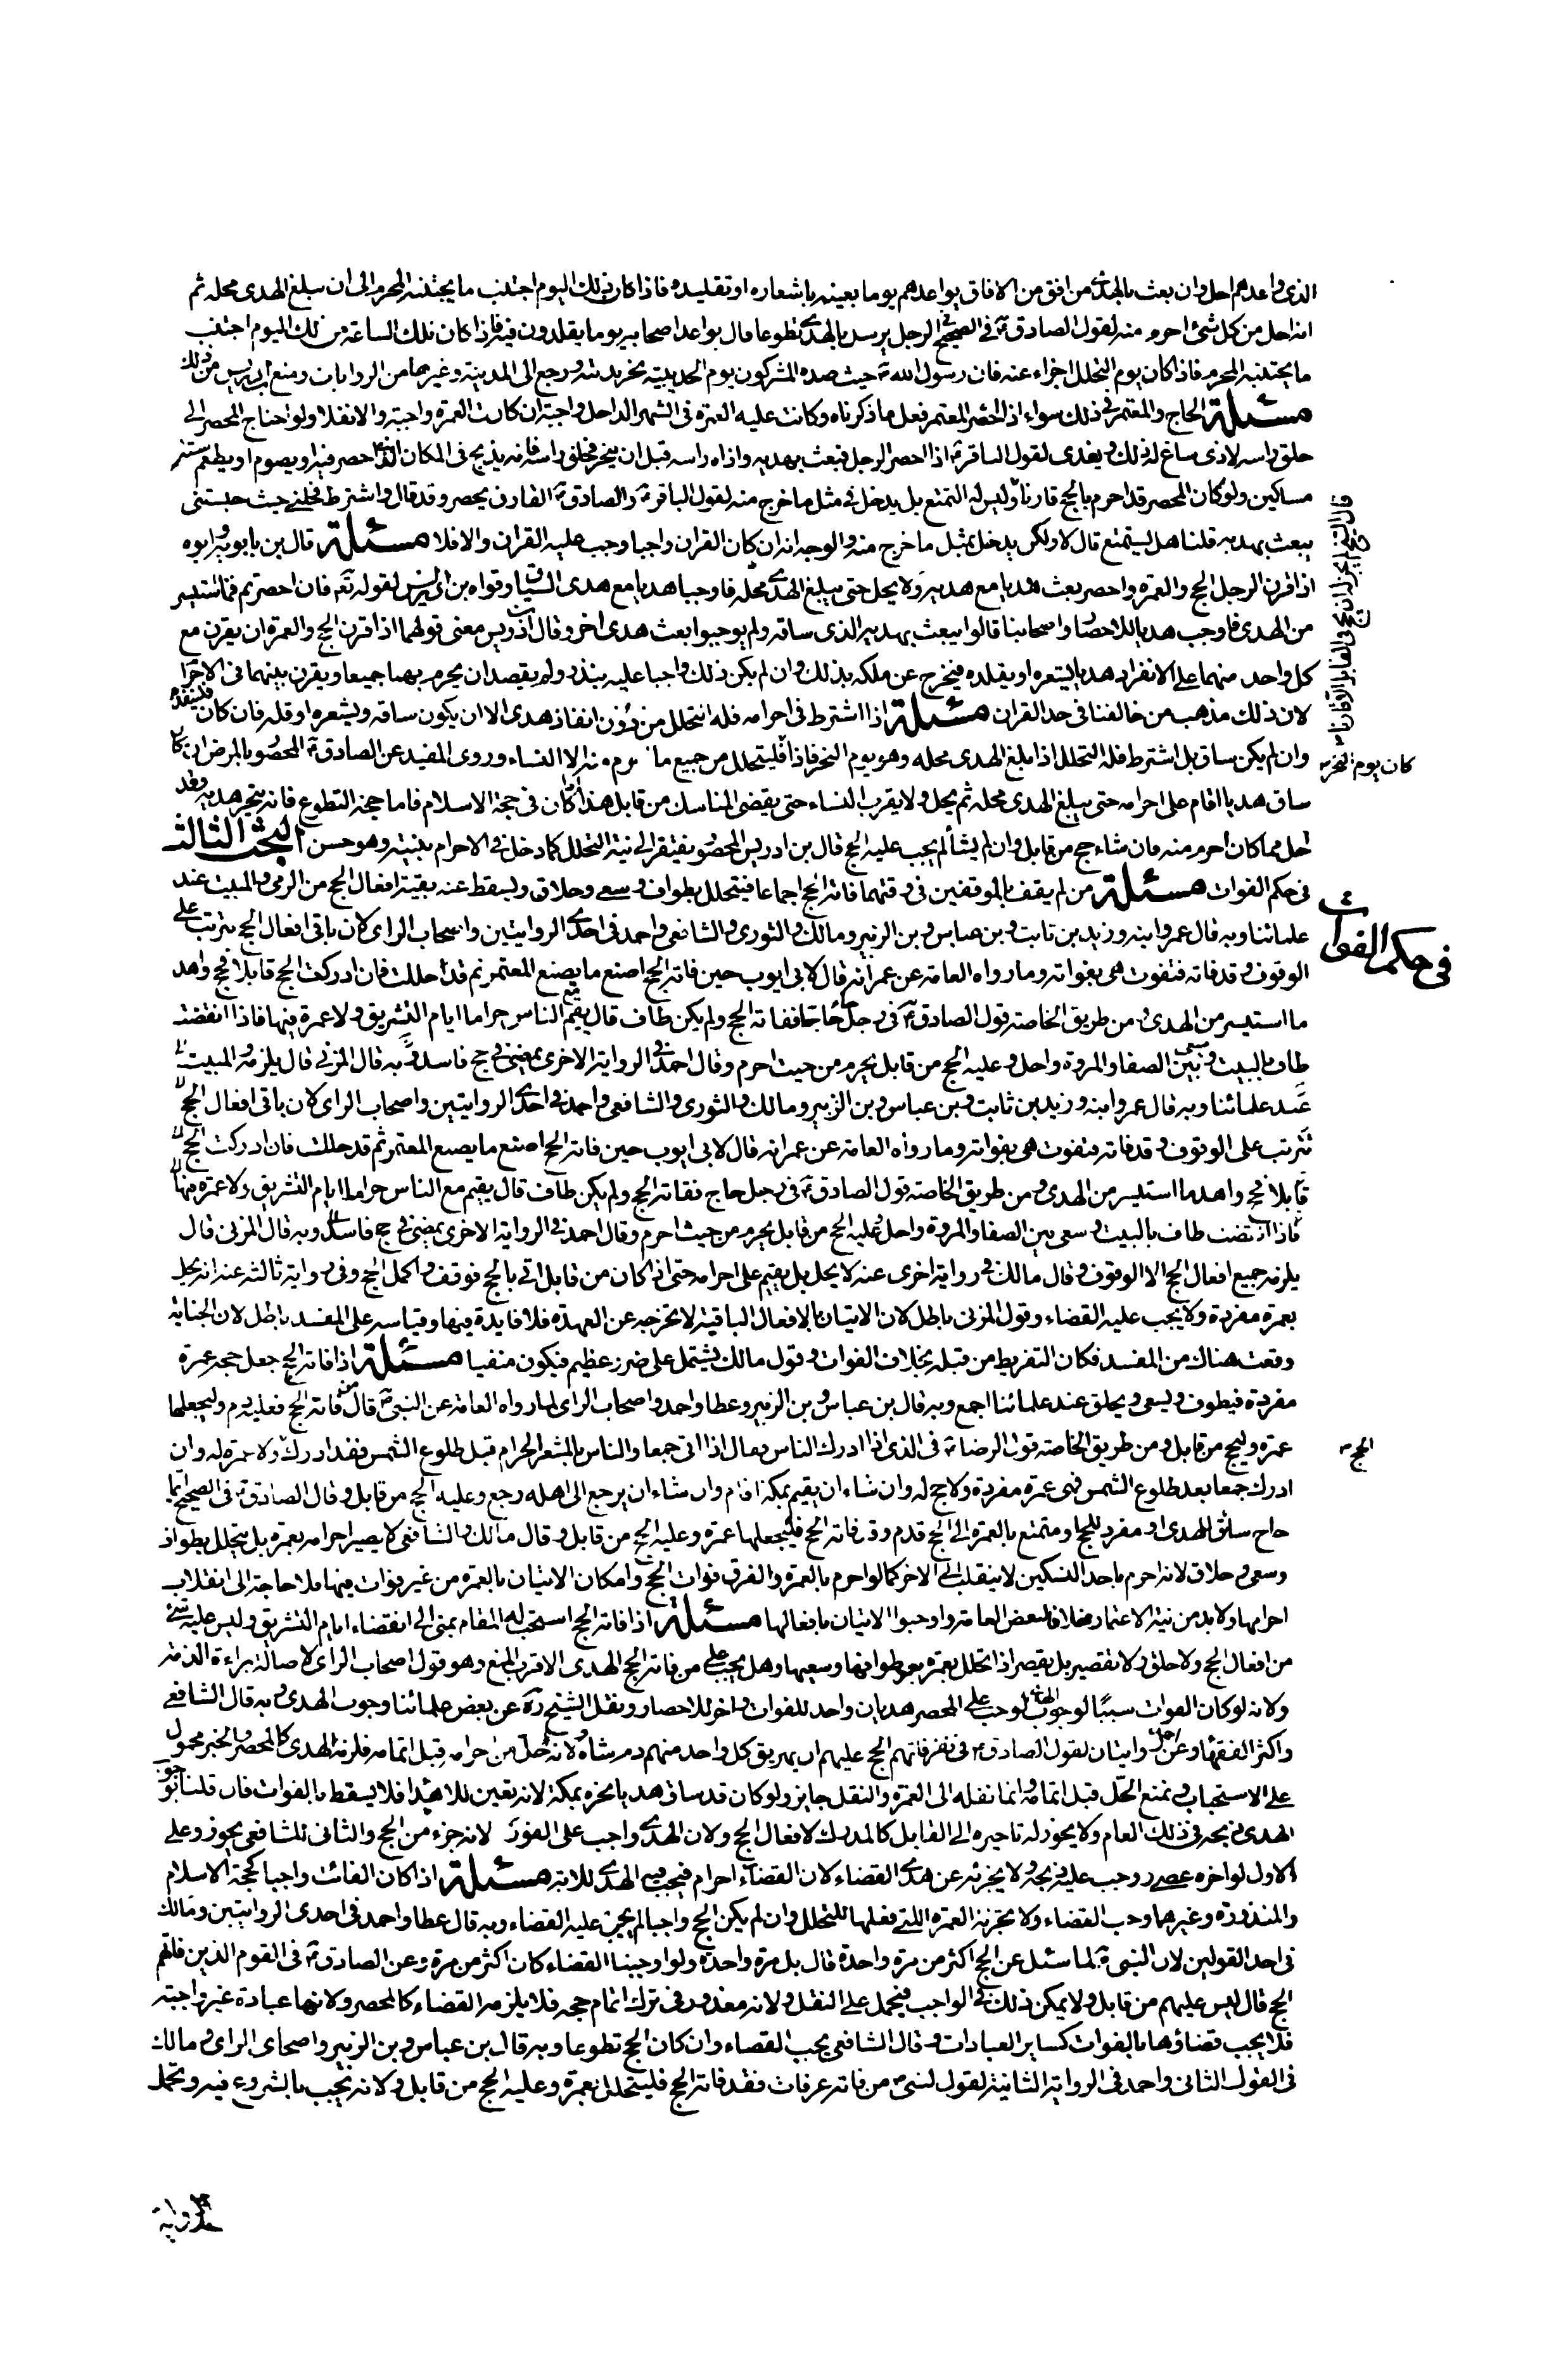 الذى واعدهم احل وان بعث بالهدى من افق من الافاق يواعدهم يوما بعينه باشعاره او تقليده فاذا كان ذلك اليوم اجتنب ما يجتنبه المحرم الى ان يبلغ الهدى محله ثم
انه احل من كل شئ احرم منه لقول الصادق ع فى الصحيح فى الرجل يرسل بالهدى تطوعا قال يواعد اصحابه يوما يقلدون فيه فاذا كان تلك الساعة من ذلك اليوم اجتنب
ما يجتنبه المحرم فاذا كان يوم النحر اجزاء عنه فان رسول الله ص حيث صده المشركون يوم الحديبية نحر بدنته ورجع الى المدينة وغيرهما من الروايات ومنع ابن ادريس من ذلك
مسئلة الحاج والمعتمر فى ذلك سواء اذا احصر المعتمر فعل ما ذكرناه وكانت عليه العمرة فى الشهر الداخل واجبة ان كانت العمرة واجبة والا نفلا ولو احتاج المحصر الى
حلق راسه لاذى ساغ له ذلك ويفدى لقول الباقر ع اذا احصر الرجل فبعث بهديه واذاه راسه قبل ان ينحر فحلق راسه فانه يذبح فى المكان الذى احصر فيه او يصوم او يطعم ستة
مساكين ولو كان المحصر قد احرم بالحج قارنا وليس له التمتع بل يدخل فى مثل ما خرج منه لقول الباقر ع والصادق ع القارن يحصر وقد قال واشترط فحلنى حيث حبستنى
يبعث بهديه قلنا هل يستمتع قال لا ولكن يدخل بمثل ما خرج منه والوجه انه ان كان القران واجبا وجب عليه القران والا فلا مسئلة قال بن بابويه وابوه
اذا قرن الرجل الحج والعمرة واحصر بعث هديا مع هديه ولا يحل حتى يبلغ الهدى محله فاوجبا هديا مع هدى السياق وقواه بن ادريس لقوله تعه فان احصرتم فما استيسر
من الهدى فاوجب هديا للاحصار واصحابنا قالوا يبعث بهديه الذى ساقه ولم يوجبوا بعث هدى اخر وقال بن ادريس معنى قولهما اذا قرن الحج والعمرة ان يقرن مع
كل واحد منهما على الانفراد هديا يشعره او يقلده فيخرج عن ملكه بذلك وان لم يكن ذلك واجبا عليه بنذر ولم يقصد ان يحرم بهما جميعا ويقرن بينهما فى الاحرام
لان ذلك مذهب من خالفنا فى حد القران مسئلة اذا اشترط فى احرامه فله التحلل من دون انفاذ هدى الا ان يكون ساقه ويشعره او قلده فان كان فلينفذه
وان لم يكن ساق بل اشترط فله التحلل اذا بلغ الهدى محله وهو يوم النحر فاذا فليتحلل من جميع ما منه الا النساء وروى المفيد عن الصادق ع المحصور بالمرض ان كان
ساق هديا اقام على احرامه حتى يبلغ الهدى محله ثم يحل ولا يقرب النساء حتى يقضى المناسك من قابل هذا اذا كان فى حجة الاسلام فاما حجة التطوع فانه ينحر هديه وقد
احل مما كان احرم منه فان شاء حج من قابل وان لم يشأ لم يجب عليه الحج قال بن ادريس المحصور يفتقر الى نية التحلل كما دخل فى الاحرام بنيته وهو حسن البحث الثالث
فى حكم الفوات مسئلة من لم يقف بالموقفين فى وقتهما فاته الحج اجماعا فيتحلل بطواف وسعى وحلاق ويسقط عنه بقية افعال الحج من الرمى والمبيت عند
علمائنا وبه قال عمر وابنه وزيد بن ثابت وبن عباس وبن الزبير ومالك والثورى والشافعى واحمد فى احدى الروايتين واصحاب الراى لان باقى افعال الحج مترتب على
الوقوف وقد فاته فتفوت هى بفواته وما رواه العامة عن عمر انه قال لابى ايوب حين فاته الحج اصنع ما يصنع المعتمر ثم قد احللت فان ادركت الحج قابلا فحج واهد
ما استيسر من الهدى ومن طريق الخاصة قول الصادق ع فى رجل حاج ففاته الحج ولم يكن طاف قال يقيم مع الناس حراما ايام التشريق ولا عمرة فيها فاذا انقضت
طاف بالبيت وسعى بين الصفا والمروة واحل وعليه الحج من قابل يحرم من حيث احرم وقال احمد فى الرواية الاخرى يمضى فى حج فاسد وبه قال المزنى قال يلزمه المبيت
عند علمائنا وبه قال عمر وابنه وزيد بن ثابت وبن عباس وبن الزبير ومالك والثورى والشافعى واحمد فى احدى الروايتين واصحاب الراى لان باقى افعال الحج
تترتب على الوقوف وقد فاته فتفوت هى بفواته وما رواه العامة عن عمر انه قال لابى ايوب حين فاته الحج اصنع ما يصنع المعتمر ثم قد حللت فان ادركت الحج
قابلا فحج واهد ما استيسر من الهدى ومن طريق الخاصة قول الصادق ع فى رجل حاج ففاته الحج ولم يكن طاف قال يقيم مع الناس حراما ايام التشريق ولا عمرة فيها
فاذا انقضت طاف بالبيت وسعى بين الصفا والمروة واحل وعليه الحج من قابل يحرم من حيث احرم وقال احمد فى الرواية الاخرى يمضى فى حج فاسد وبه قال المزنى قال
يلزمه جميع افعال الحج الا الوقوف وقال مالك فى رواية اخرى عنه لا يحل بل يقيم على احرامه حتى اذا كان من قابل اتى بالحج فوقف واكمل الحج وفى رواية ثالثة عنه انه يحل
بعمرة مفردة ولا يجب عليه القضاء وقول المزنى باطل لان الاتيان بالافعال الباقية لا تخرجه عن العهدة فلا فايدة فيها وقياسه على المفسد باطل لان الجناية
وقعت هناك من المفسد فكان التفريط من قبله بخلاف الفوات وقول مالك يشتمل على ضرر عظيم فيكون منفيا مسئلة اذا فاته الحج جعل حجه عمرة
مفردة فيطوف ويسعى ويحلق عند علمائنا اجمع وبه قال بن عباس وبن الزبير وعطا واحمد واصحاب الراى لما رواه العامة عن النبى ص قال من فاته الحج فعليه دم وليجعلها
عمرة وليحج من قابل ومن طريق الخاصة قول الرضا ع فى الذى اذا ادرك الناس فقال اذا اتى جمعا والناس بالمشعر الحرام قبل طلوع الشمس فقد ادرك ولا عمرة له وان
ادرك جمعا بعد طلوع الشمس فهى عمرة مفردة ولا حج له وان شاء ان يقيم بمكة اقام وان شاء ان يرجع الى اهله رجع وعليه الحج من قابل وقال الصادق ع فى الصحيح ايما
حاج سائق للهدى او مفرد للحج او متمتع بالعمرة الى الحج قدم وقد فاته الحج فليجعلها عمرة وعليه الحج من قابل وقال مالك والشافعى لا يصير احرامه بعمرة بل يتحلل بطواف
وسعى وحلاق لانه احرم باحد النسكين لا ينقلب الى الاخر كما لو احرم بالعمرة والفرق فوات الحج وامكان الاتيان بالعمرة من غير فوات فيها فلا حاجة الى انقلاب
احرامها ولا بد من نية الاعتمار خلافا لبعض العامة واوجبوا الاتيان بافعالها مسئلة اذا فاته الحج استحب له المقام بمنى الى انقضاء ايام التشريق وليس عليه شئ
من افعال الحج ولا حلق ولا تقصير بل يقصر اذا تحلل بعمرة بعد طوافها وسعيها وهل يجب على من فاته الحج الهدى الاقرب المنع وهو قول اصحاب الراى لاصالة براءة الذمة
ولانه لو كان الفوات سببا لوجوب الهدى لوجب على المحصر هديان واحد للفوات واخر للاحصار ونقل الشيخ ره عن بعض علمائنا وجوب الهدى وبه قال الشافعى
واكثر الفقهاء وعن احمد روايتان لقول الصادق ع فى نفر فاتهم الحج عليهم ان يهريق كل واحد منهم دم شاة ولانه حل من احرامه قبل اتمامه فلزمه الهدى كالمحصر والخبر محمول
على الاستحباب ونمنع الحل قبل اتمامه وانما نقله الى العمرة والنقل جايز ولو كان قد ساق هديا نحره بمكة لانه تعين للاهداء فلا يسقط بالفوات فان قلنا بوجوب
الهدى ذبحه فى ذلك العام ولا يجوز له تاخيره الى القابل كالمدرك لافعال الحج ولان الهدى واجب على الفور لانه جزء من الحج والثانى للشافعى يجوز وعلى
الاول لو اخره عصى ووجب عليه ذبحه ولا يجزئه عن هدى القضاء لان القضاء احرام فيجب فيه الهدى للاية مسئلة اذا كان الفائت واجبا كحجة الاسلام
والمنذورة وغيرهما وجب القضاء ولا تجزئه العمرة اللتى فعلها للتحلل وان لم يكن الحج واجبا لم يجب عليه القضاء وبه قال عطا واحمد فى احدى الروايتين ومالك
فى احد القولين لان النبى ص لما سئل عن الحج اكثر من مرة واحدة قال بل مرة واحدة ولو اوجبنا القضاء كان اكثر من مرة وعن الصادق ع فى القوم الذين فاتهم
الحج قال ليس عليهم من قابل ولا يمكن ذلك فى الواجب فيحمل على النفل ولانه معذور فى ترك اتمام حجه فلا يلزمه القضاء كالمحصر ولانها عبادة غير واجبة
فلا يجب قضاؤها بالفوات كساير العبادات وقال الشافعى يجب القضاء وان كان الحج تطوعا وبه قال بن عباس وبن الزبير واصحاب الراى ومالك
فى القول الثانى واحمد فى الرواية الثانية لقول النبى ص من فاته عرفات فقد فاته الحج فليتحلل بعمرة وعليه الحج من قابل ولانه يجب بالشروع فيه وتحمل
كان يوم النحر
فى حكم الفوات
الحج